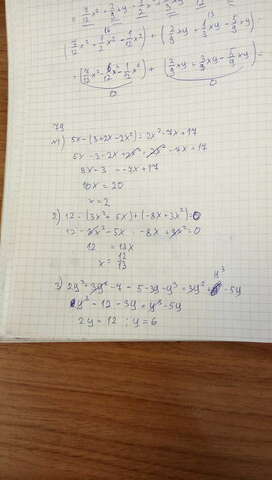 (7/12 x² - 1/2 x² - 1/12 x²) + (2/9 xy + 1/3 xy - 5/9 xy)
= (7/12 x² - 6/12 x² - 1/12 x²) + (2/9 xy + 3/9 xy - 5/9 xy) =
0 0
79
№1) 5x - (3+2x-2x²) = 2x² - 7x + 17
5x - 3 - 2x + 2x² = 2x² - 7x + 17
3x - 3 = -7x + 17
10x = 20
x = 2
2) 12 - (3x² + 5x) + (-8x + 3x²) = 0
12 - 3x² - 5x - 8x + 3x² = 0
12 = 13x
x = 12/13
3) 2y³ + 3y² - 7 - 5 - 3y - y³ = 3y² + y³ - 5y
y³ - 12 - 3y = y³ - 5y
2y = 12 ; y = 6